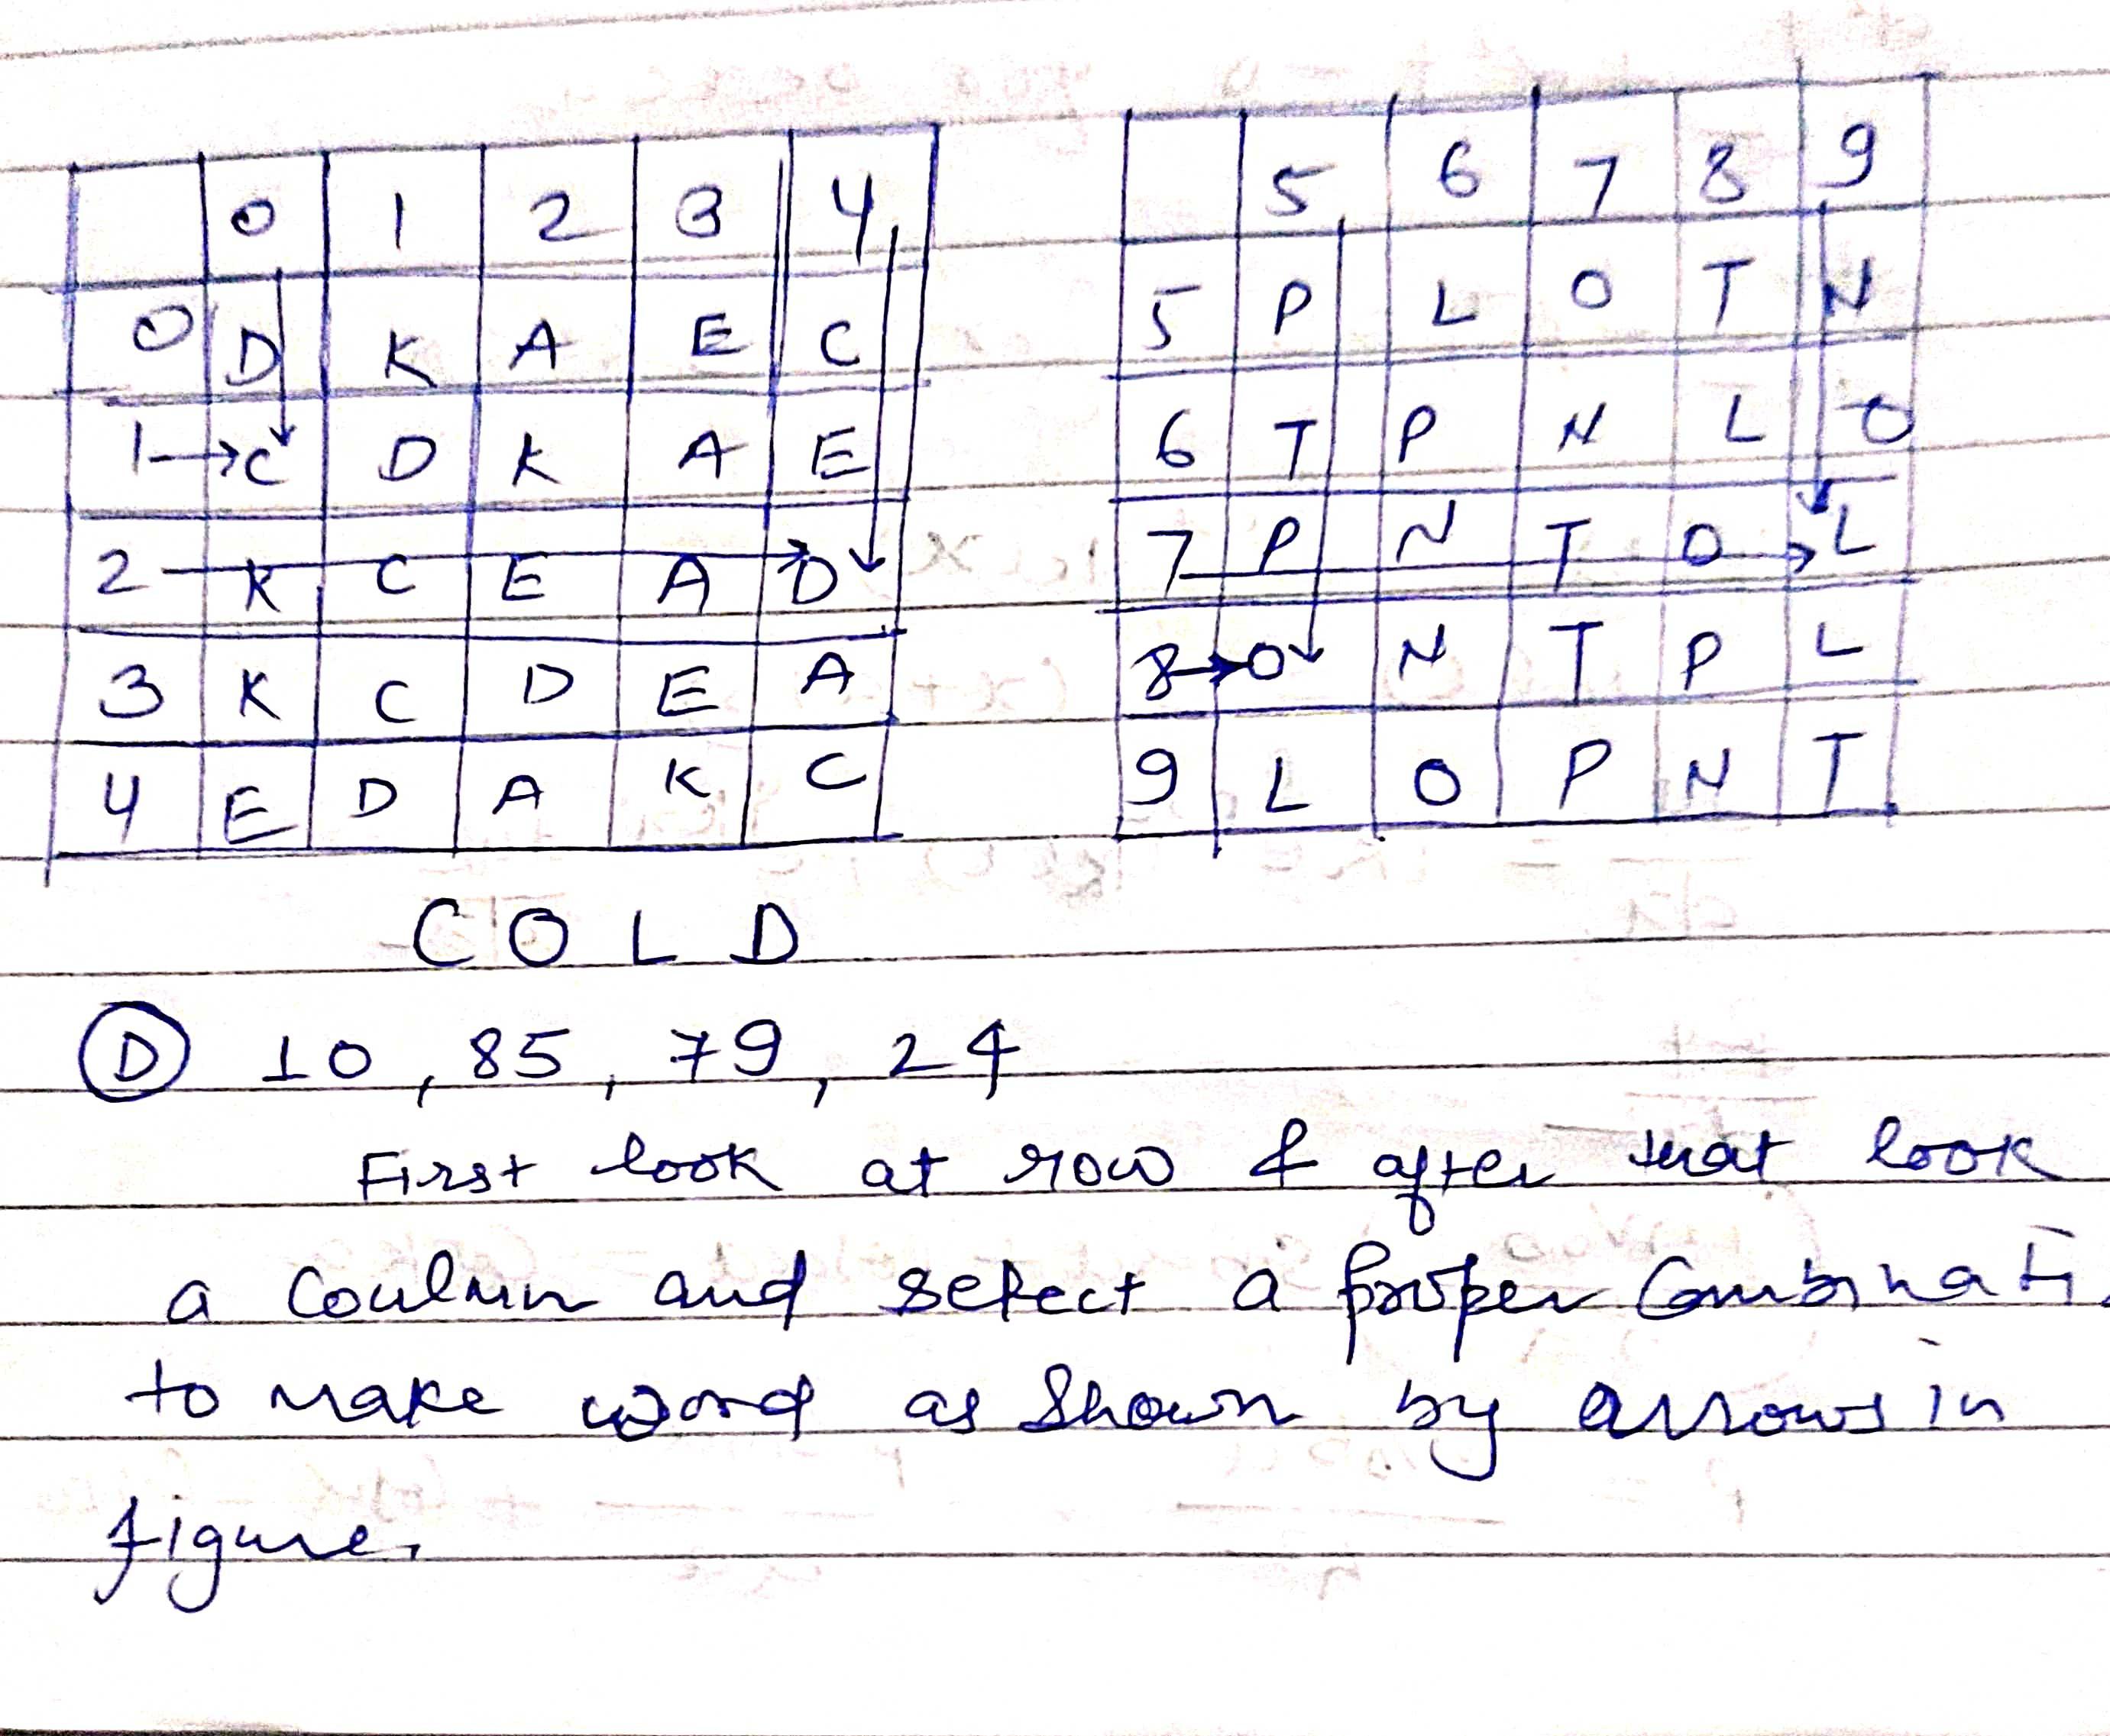 0 1 2 3 4
0 D K A E C
1 C D K A E
2 K C E A D
3 K C D E A
4 E D A K C
5 6 7 8 9
5 P L O T N
6 T P N L O
7 P N T O L
8 O N T P L
9 L O P N T
C O L D
D 10, 85, 79, 24
First look at row & after that look
a Coulmn and select a proper Combinati
to make word as shown by arrows in
figure.